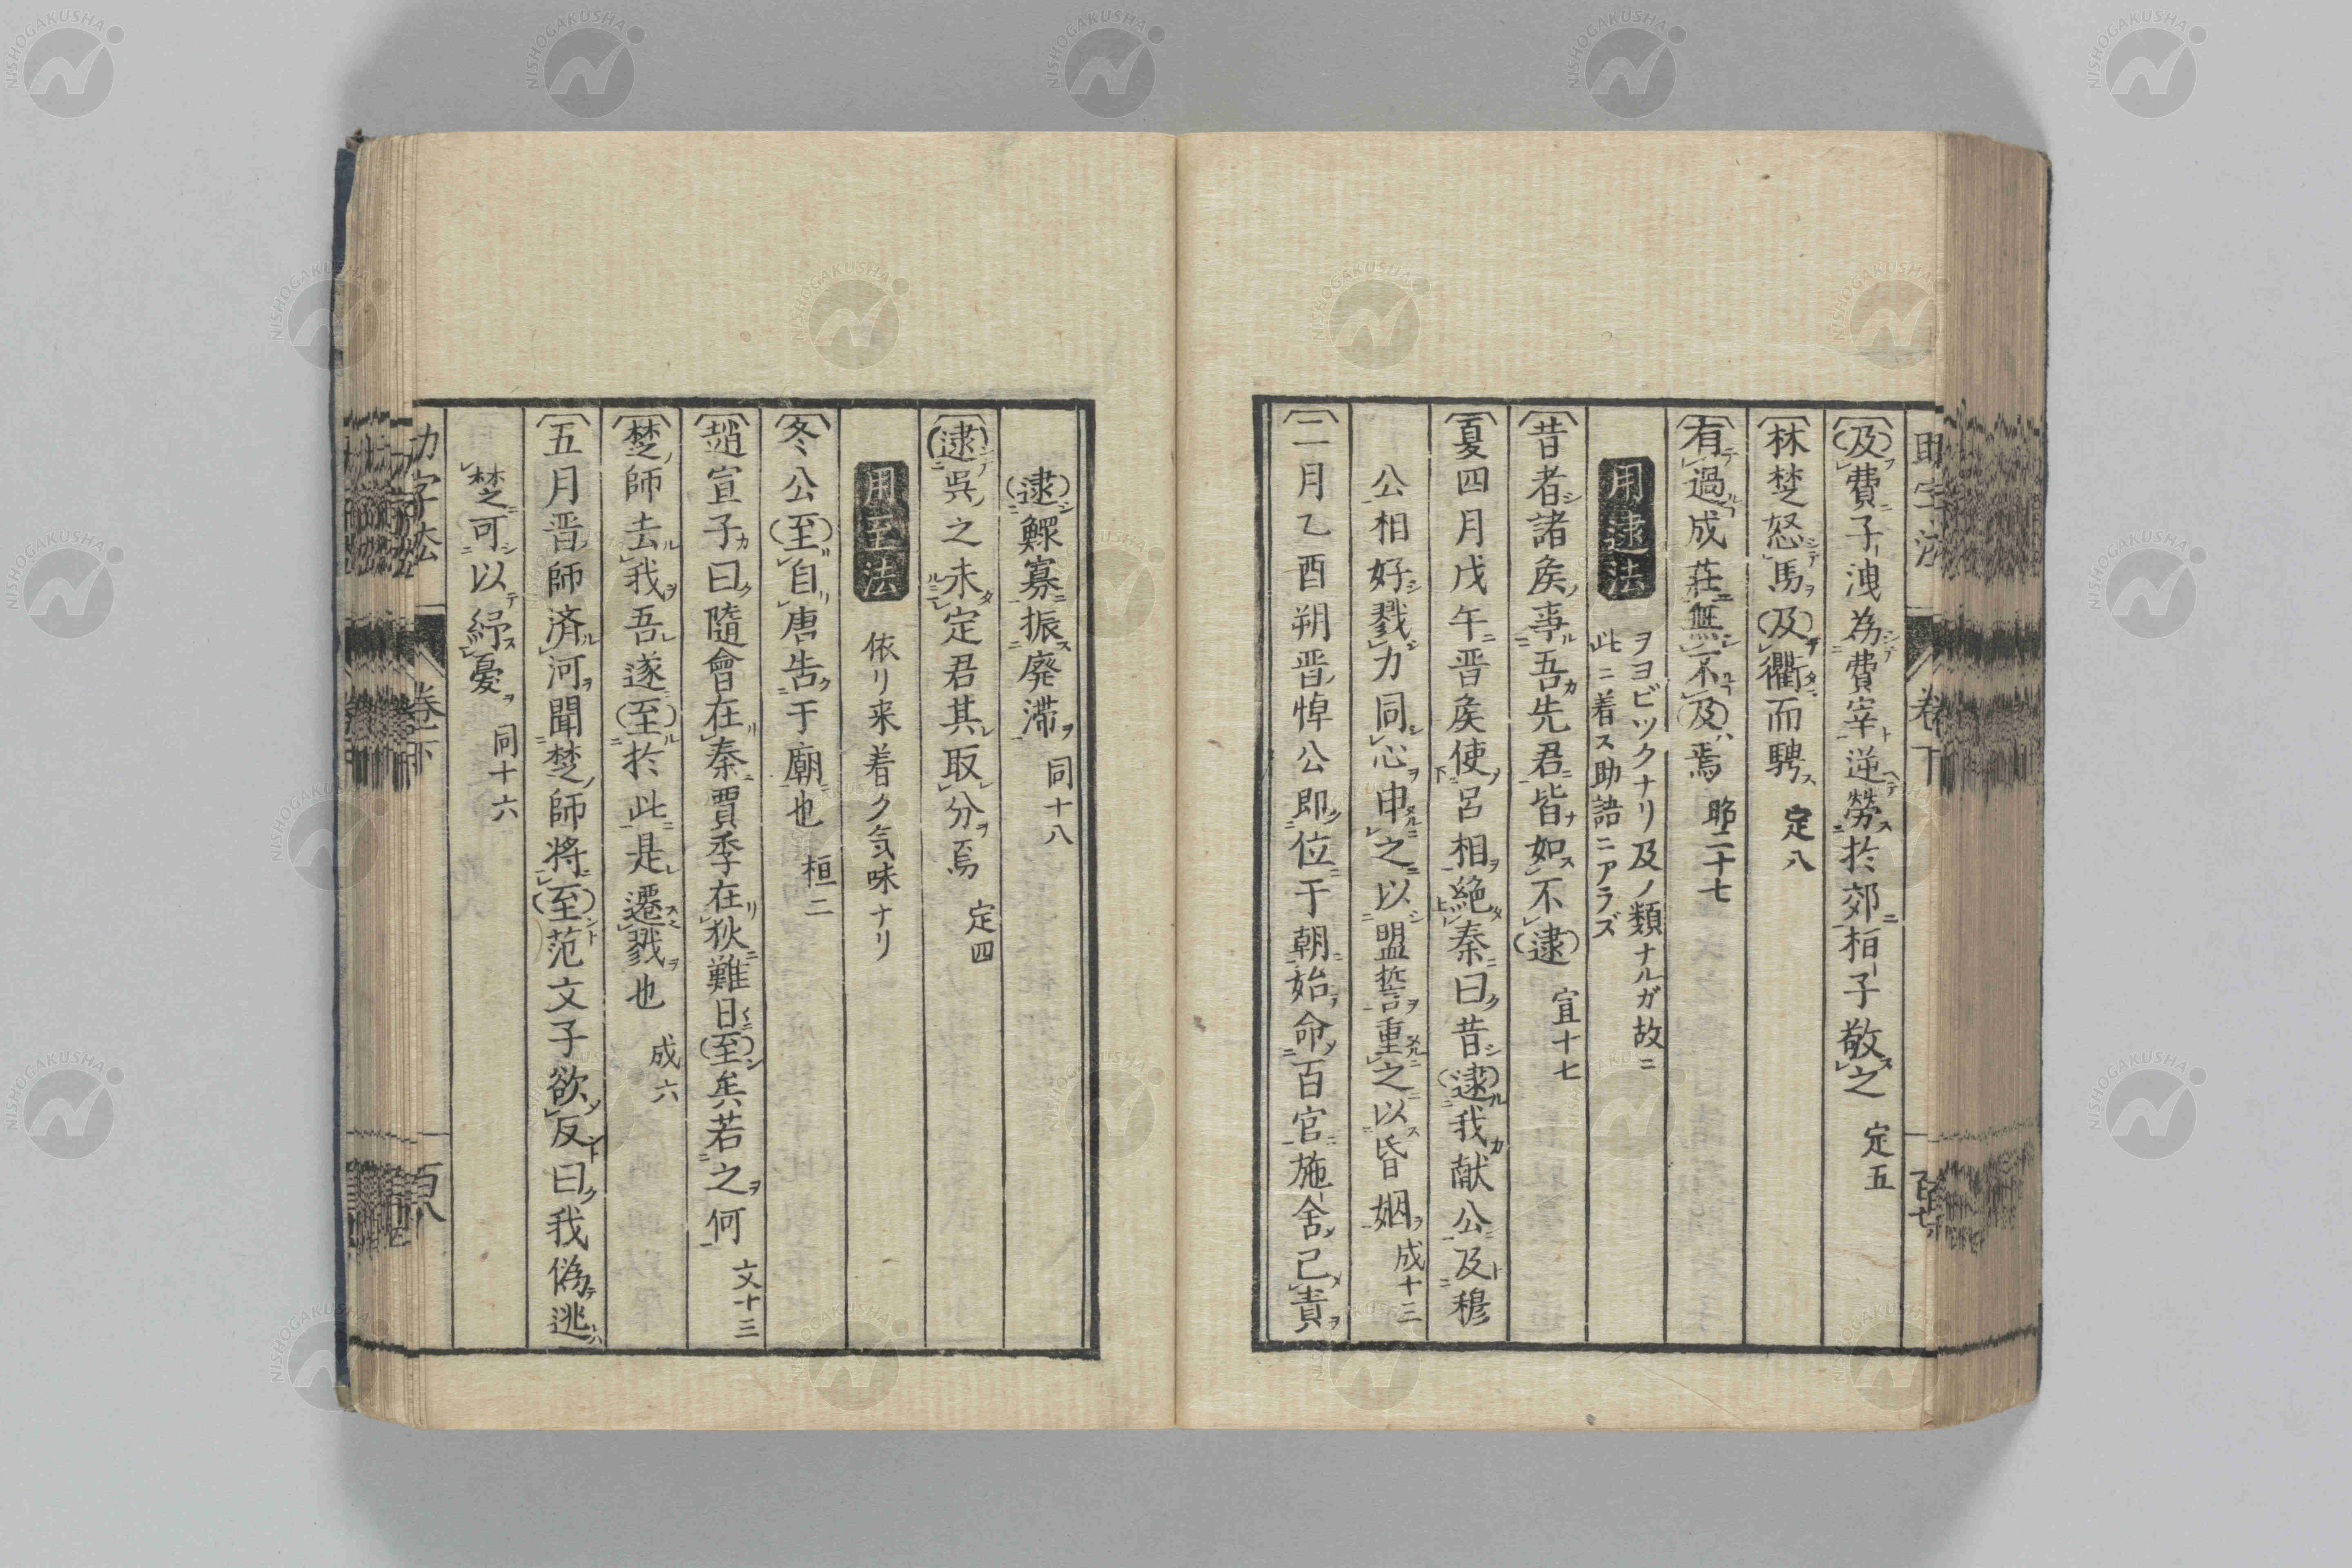 及費子洩為費宰逆勞於郊栢子敬之 定五
林楚怒馬及衢而騁 定八
有過成莊無不及焉 昭二十七
用逮法 ヲヨビツクナリ及ノ類ナルガ故ニ
此ニ着ス助語ニアラズ
昔者諸矦事吾先君皆如不逮 宣十七
夏四月戊午晋矦使呂相絶秦曰昔逮我献公及穆
公相好戮力同心申之以盟誓重之以昏姻 成十三
二月乙酉朔晋悼公即位于朝始命百官施舍己責
逮鰥寡振廃滞 同十八
逮呉之未定君其取分焉 定四
用至法 依リ来着ク気味ナリ
冬公至自唐告于廟也 桓二
趙宣子曰隨會在秦賈季在狄難日至矣若之何 文十三
楚師去我吾遂至於此是遷戮也 成六
五月晋師済河聞楚師将至范文子欲反曰我偽逃
楚可以紓憂 同十六
卷下
NISHOGAKUSHA